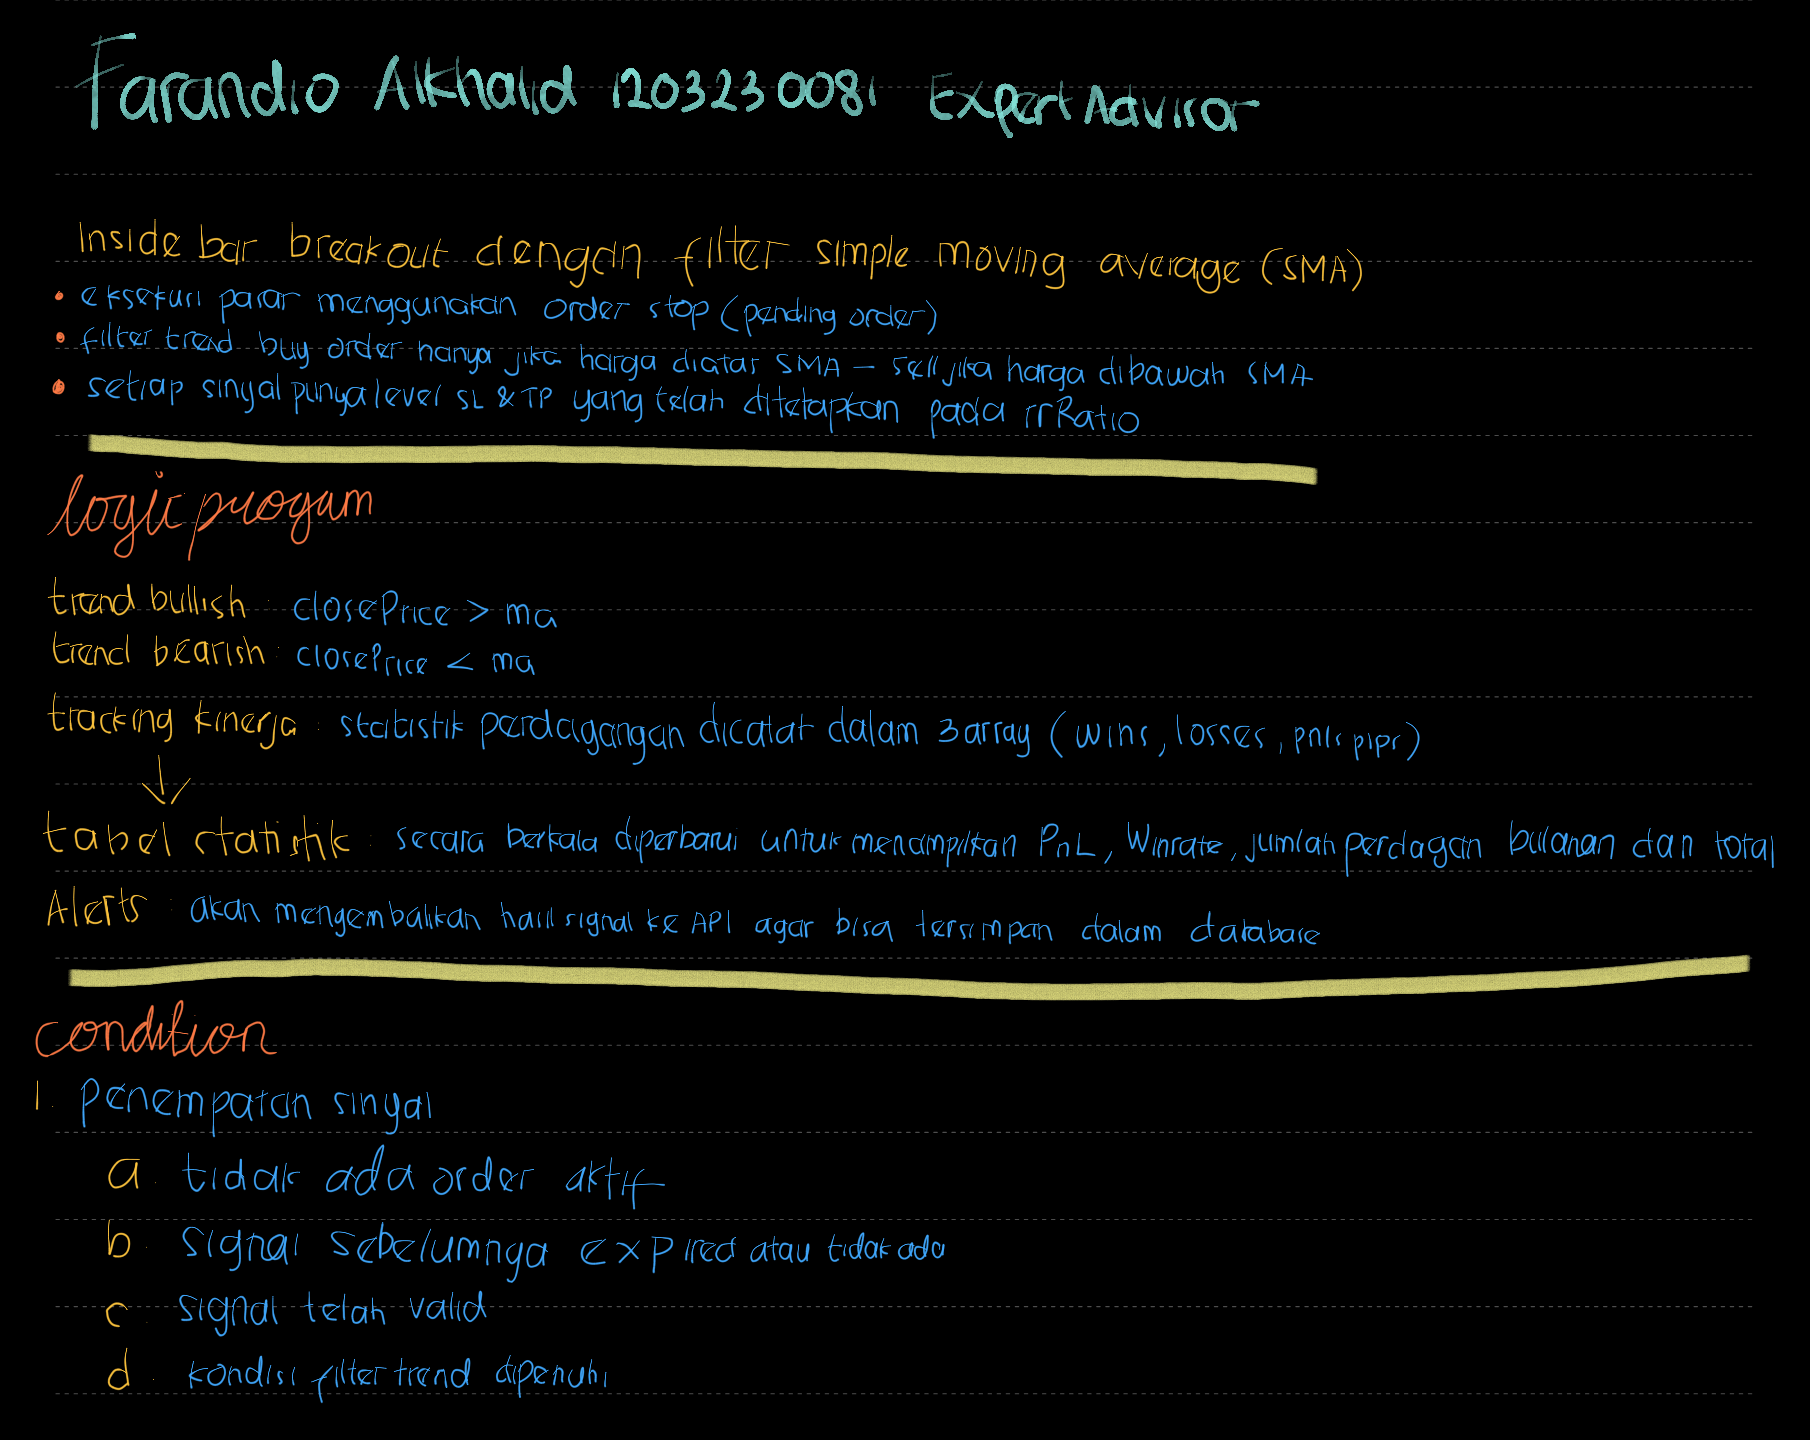 Farandio Alkhalid 1203230081 Expert Advisor
Inside bar breakout dengan filter simple moving average (SMA)
• eksekusi pasar menggunakan order stop (pending order)
• filter trend buy order hanya jika harga diatas SMA - sell jika harga dibawah SMA
• setiap sinyal punya level SL & TP yang telah ditetapkan pada rrRatio
logic progam
trend bullish : closePrice > ma
trend bearish : closePrice < ma
tracking kinerja : statistik perdagangan dicatat dalam 3 array (wins, losses, pnls pips)
↓
tabel statistik : secara berkala diperbarui untuk menampilkan PnL, Winrate, jumlah perdagan bulanan dan total
Alerts : akan mengembalikan hasil signal ke API agar bisa tersimpan dalam database
condition
1. penempatan sinyal
a. tidak ada order aktif
b. signal sebelumnya expired atau tidak ada
c. signal telah valid
d. kondisi filter trend dipenuhi